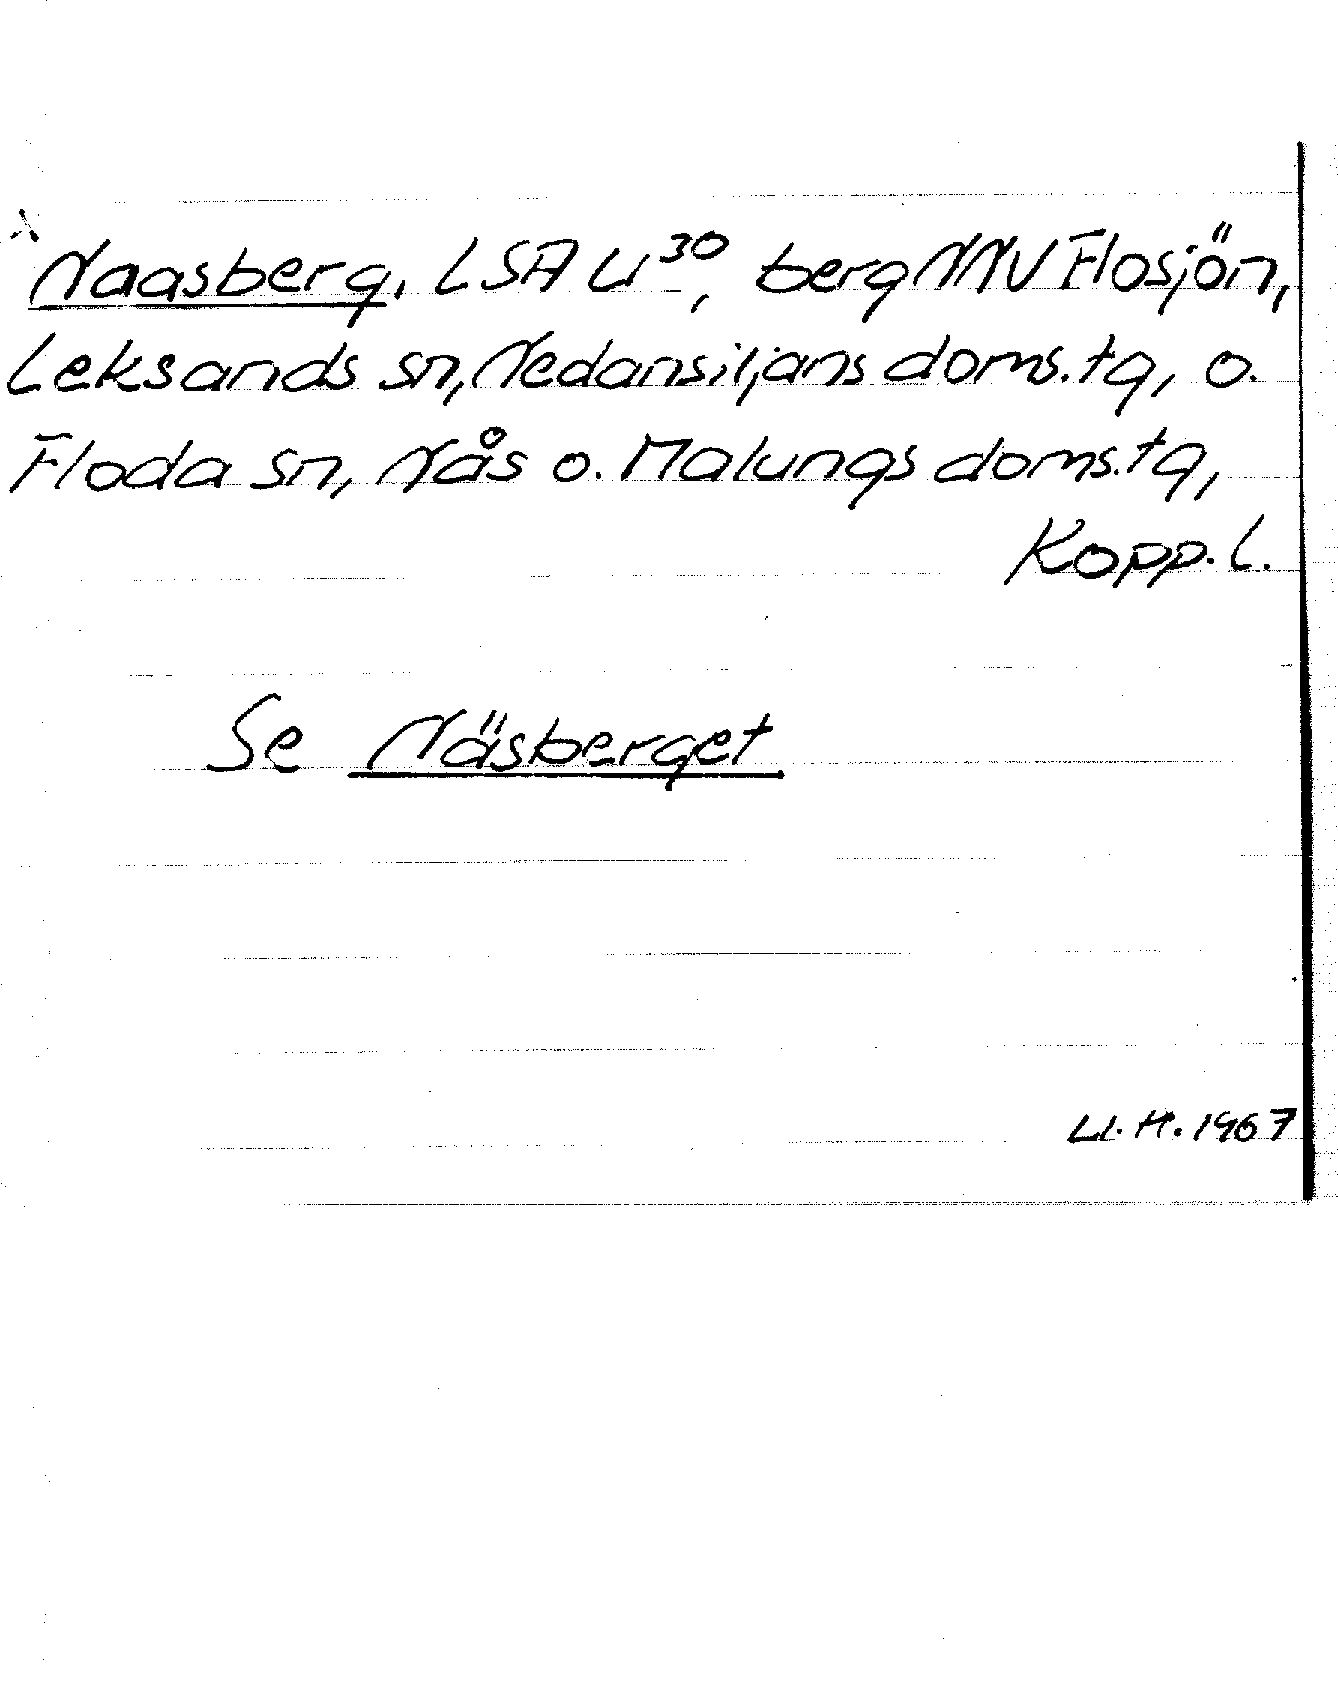 Naasberg, LSA U³⁰, berg NNV Flosjön,
Leksands sn, Nedansiljans doms.tg, o.
Floda sn, Nås o. Malungs doms.tg,
Kopp.l.
Se Näsberget
H. 1967